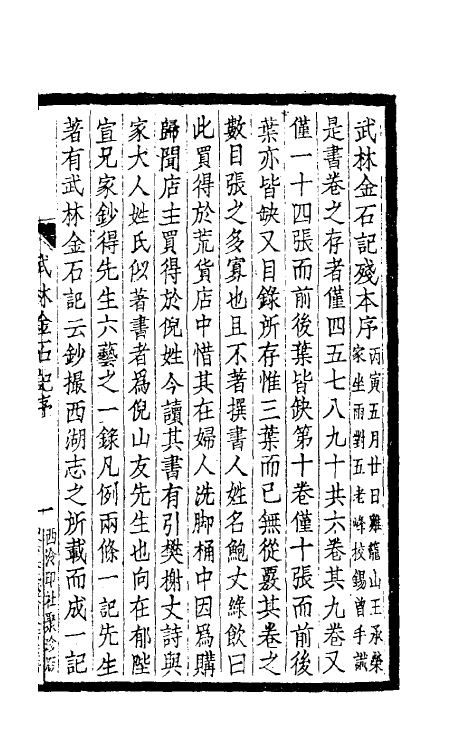 武林金石記殘本序丙寅五月廿日雞籠山王承榮
家坐雨對五老峰校錫曾手識
是書卷之存者僅四五七八九十共六卷其九卷又
僅一十四張而前後葉皆缺第十卷僅十張而前後
葉亦皆缺又目錄所存惟三葉而已無從覈其卷之
數目張之多寡也且不著撰書人姓名鮑丈綠飲曰
此買得於荒貨店中惜其在婦人洗脚桶中因爲購
歸聞店主買得於倪姓今讀其書有引樊榭丈詩與
家大人姓氏似著書者爲倪山友先生也向在郁陛
宣兄家鈔得先生六藝之一錄凡例兩條一記先生
著有武林金石記云鈔撮西湖志之所載而成一記
武林金石記序
一
西泠印社聚珍